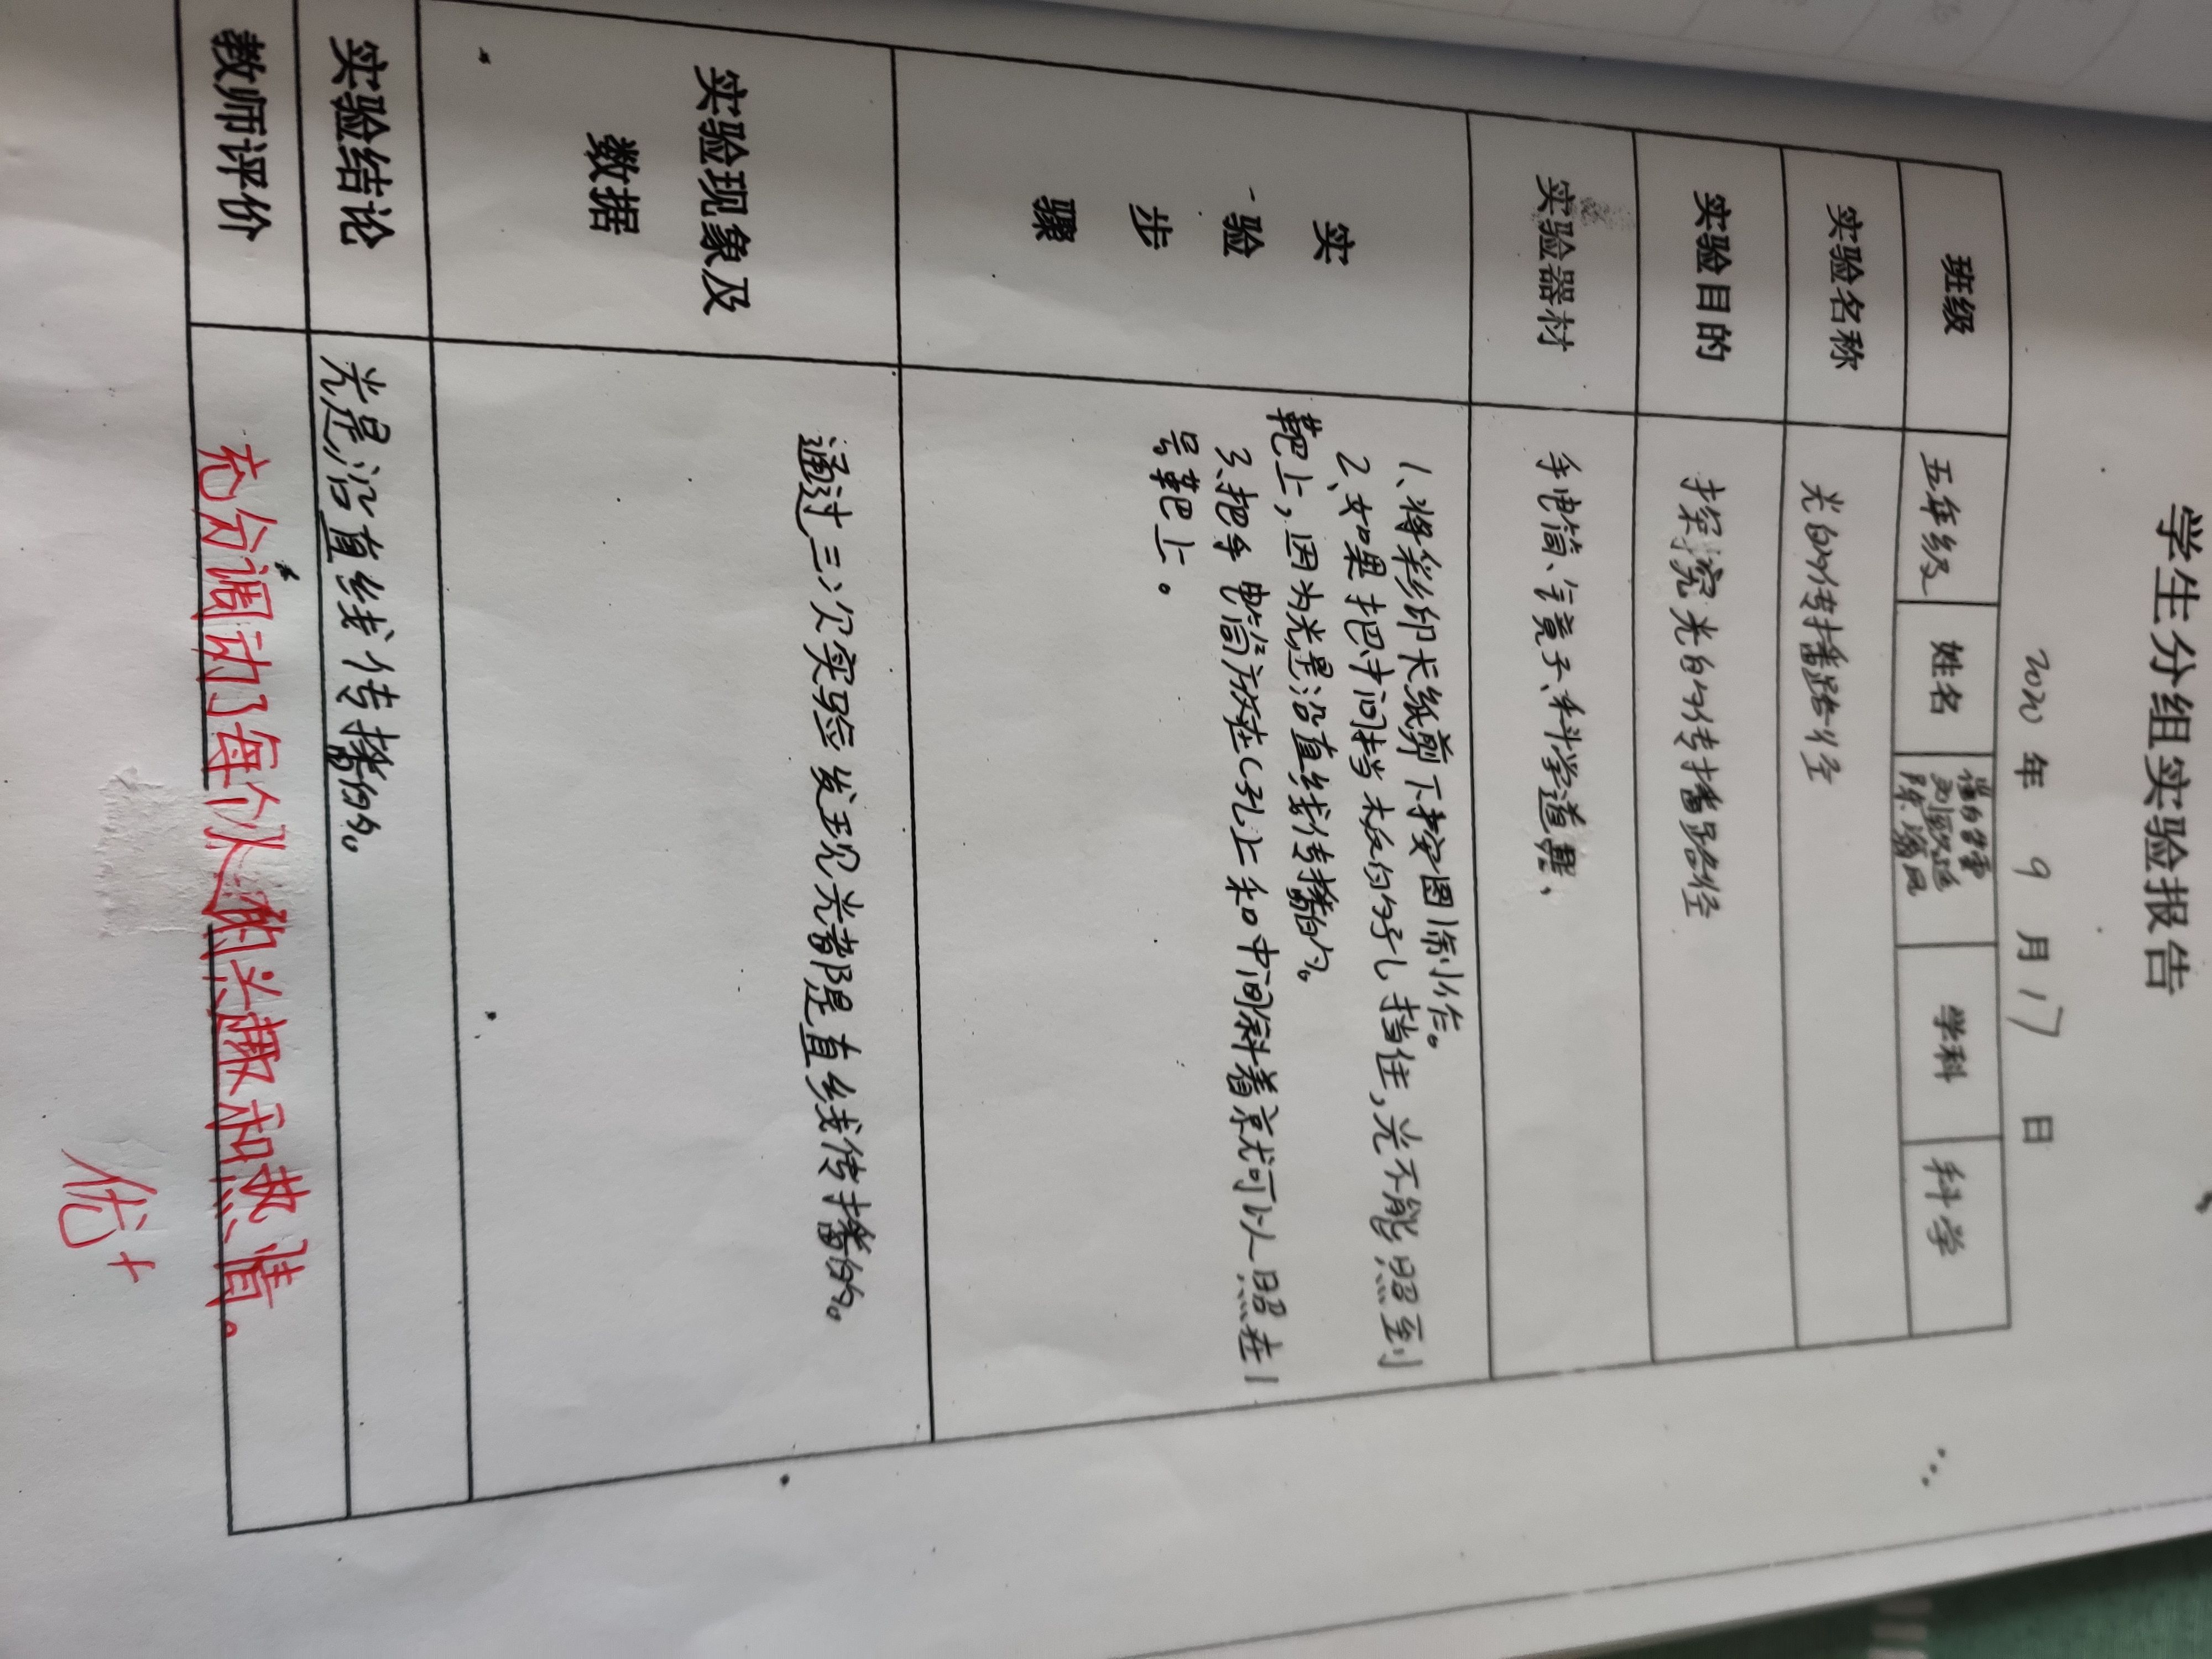 学生分组实验报告
2020 年 9 月 17 日
班级 五年级 姓名 学科 科学
实验名称 光的传播路径
实验目的 探究光的传播路径
实验器材 手电筒、镜子、科学道具、
实验步骤
1、将彩印长纸剪下按图制作。
2、如果把中间挡板的孔挡住,光不能照到
靶上,因为光是沿直线传播的。
3、把手电筒放在(孔)上和中间斜着京尤可以照在1
号靶上。
实验现象及
数据
通过三次实验发现光都是直线传播的。
实验结论 光是沿直线传播的。
教师评价 充分调动了每个人的兴趣和热情。
优+